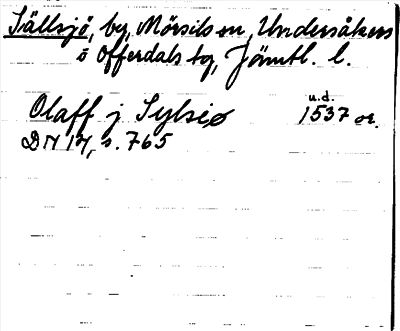 Sällsjö, by, Mörsils sn, Undersåkers
o Offerdals tg, Jämtl. l.
u.d.
Olaff j Sylsiø 1537 or.
DN 14, s. 765